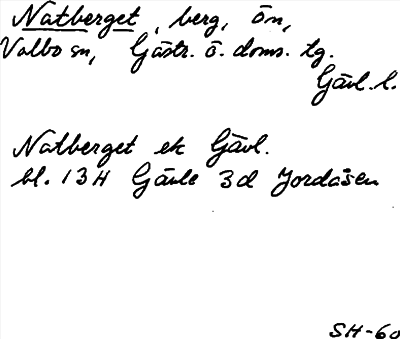 Natberget, berg, Ön,
Valbo sn, Gästr. ö. doms. tg.
Gävl. l.
Natberget ek Gävl.
bl. 13H Gävle 3d Jordåsen
SH-60